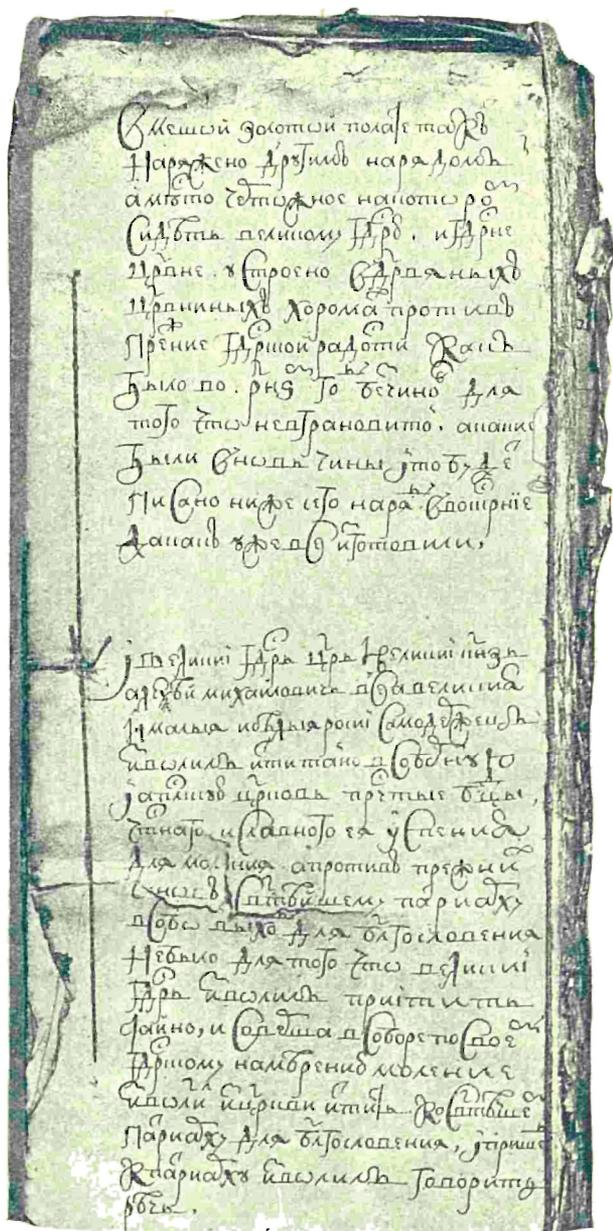 В меншой золотой полате такъ
наряжено другимъ нарядомъ
а мѣсто чертожное на которо
сидѣть великому гдрю. и гдрне
црвне. устроено в древяныхъ
црвниныхъ хорома противъ
прежние гдршой радости какъ
было во. рнѕ го бе чино для
того что не в грановитой. а какие
были вновь чины и то буде
писано ниже сего наря в
а какъ уже все изготовили,
и великиі гдрь црь и великиі кнзь
алеѯѣй михаиловичь всеа великия
и малыя и бѣлыя росиі самодержецъ
изволилъ итти таино в соборную
и апслкую црковь прчстые бцы,
чтнаго и славного ея успения
для моления а противъ прежни
чиновъ свтѣишему париарху
в собо выхо для блгословения
не было для того что великиі
гдрь изволилъ приітить
таино, и соверша в соборе по свое
гдршому намѣрению моление
изволи и цркви итить ко свтѣише
париарху для блгословения, и прише
к париарху изволилъ говорить
рѣчь.